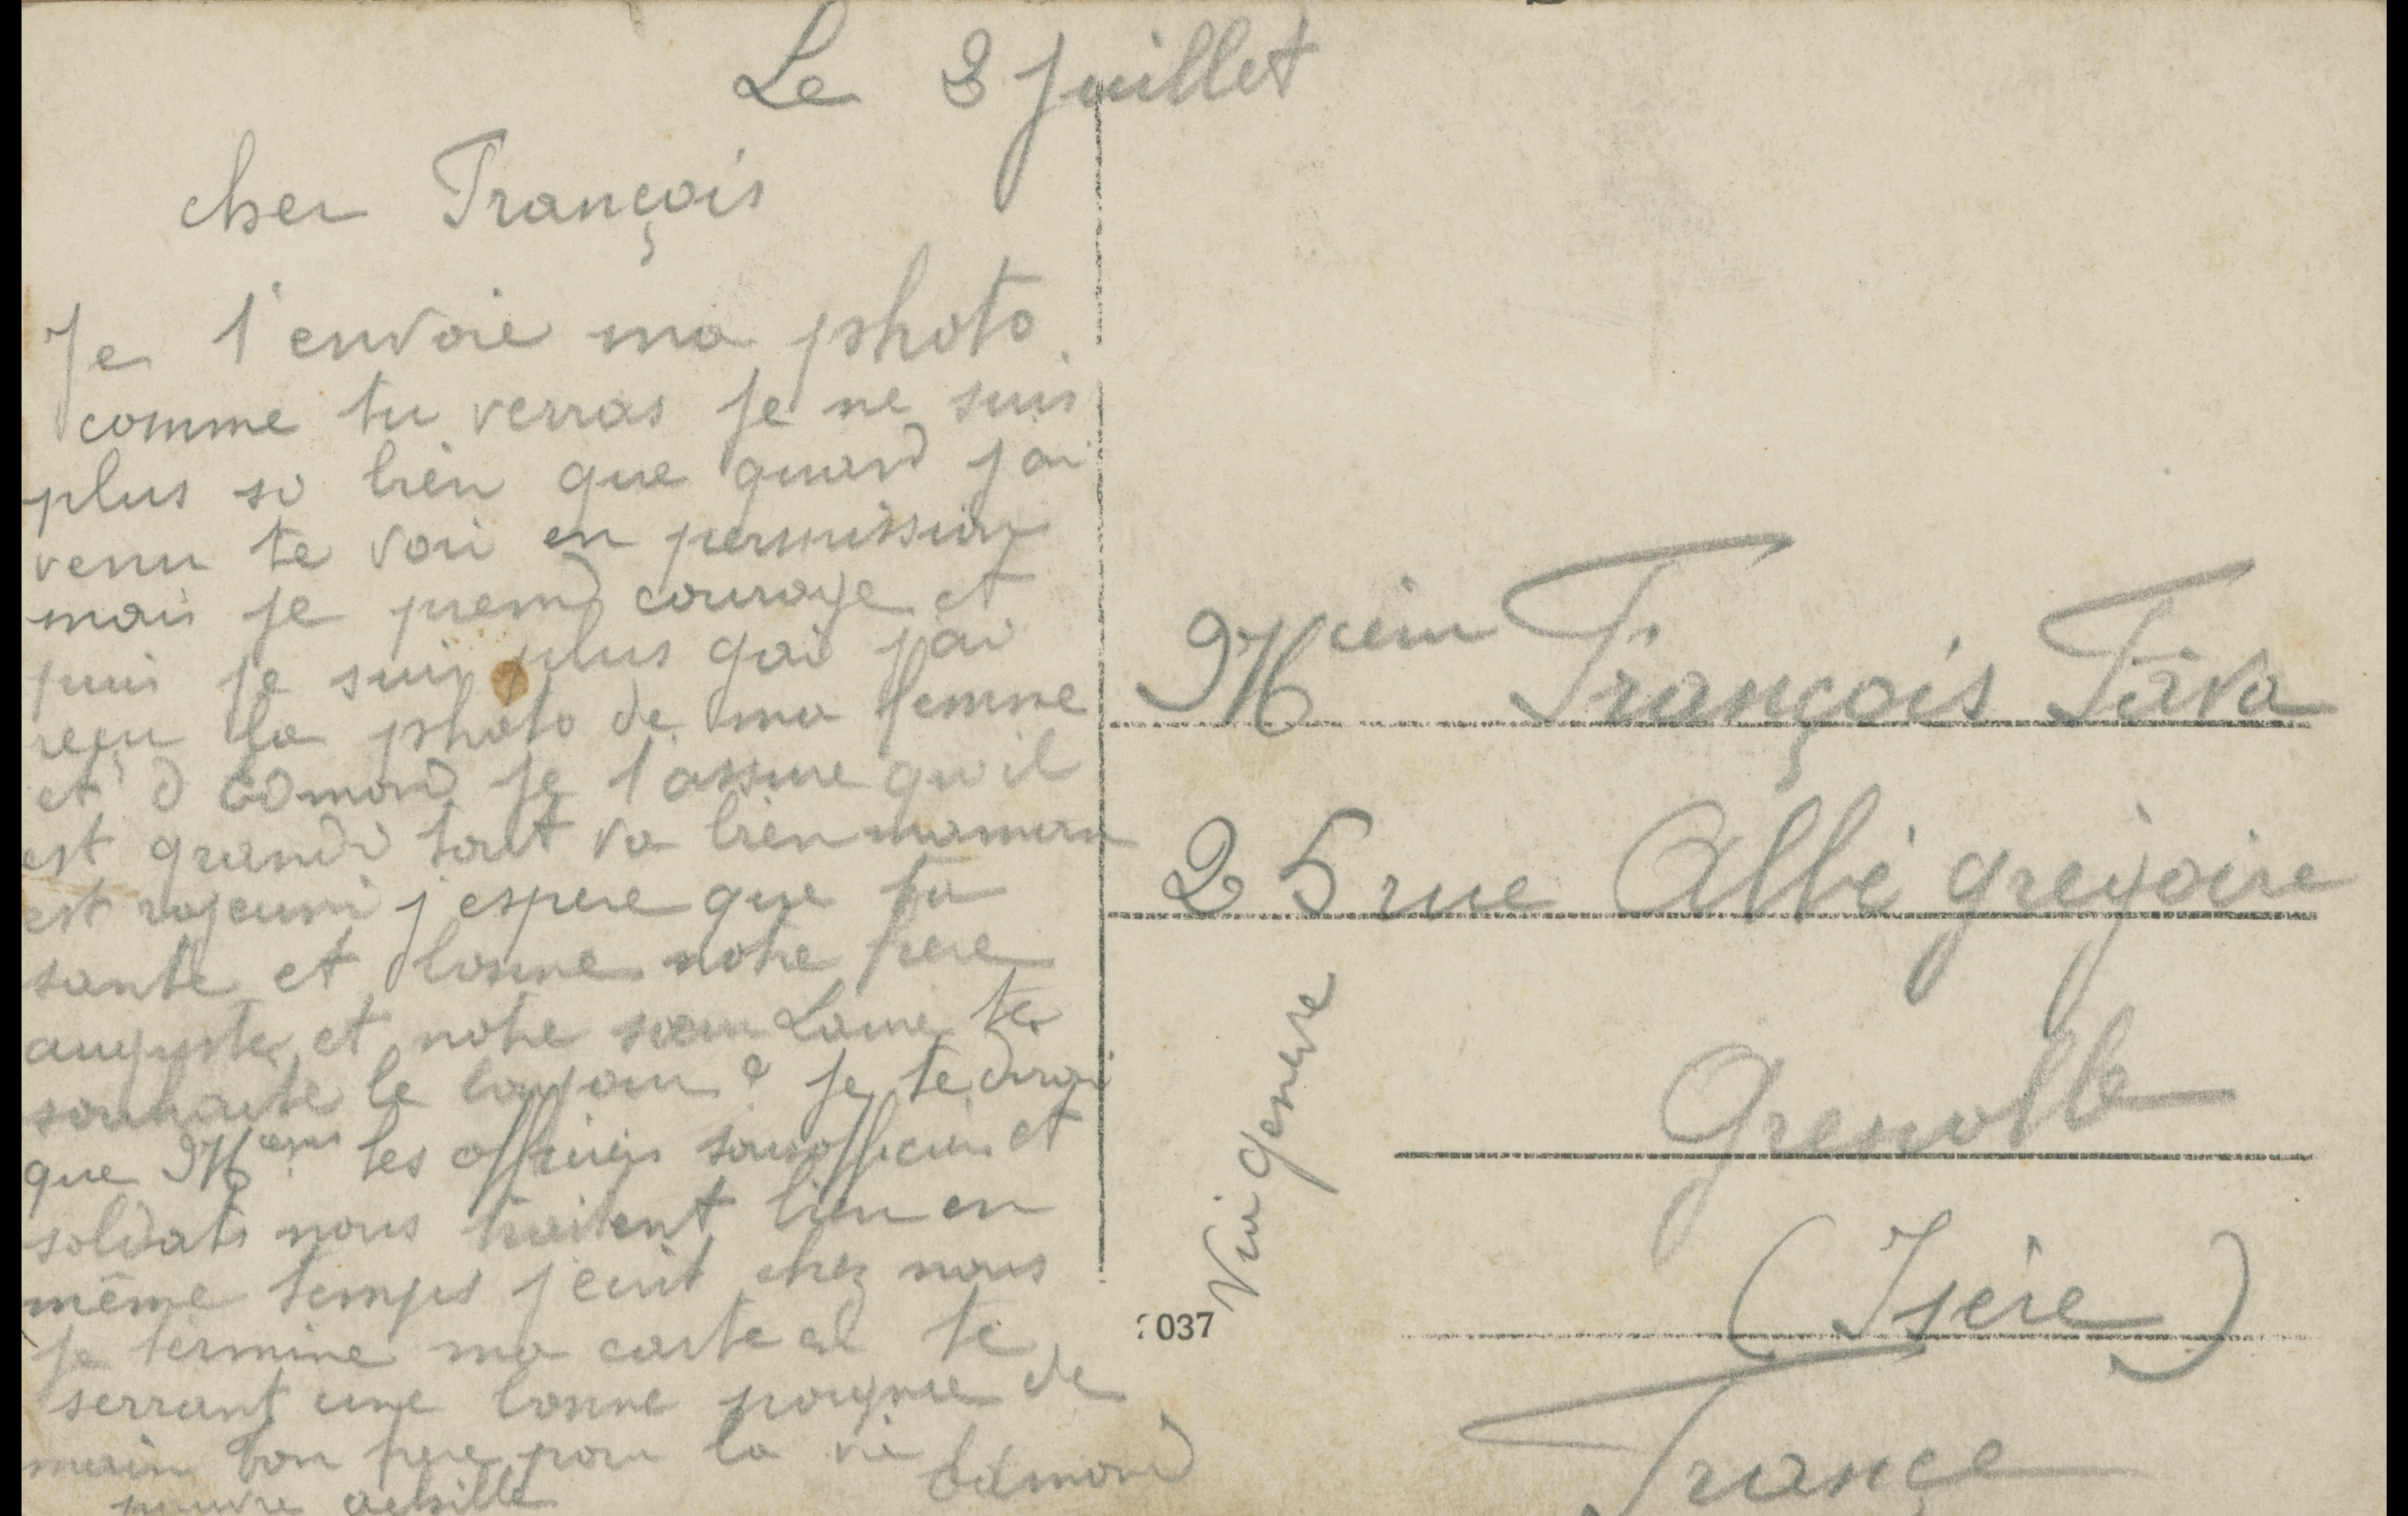 Le 8 Juillet
cher François
Je t'envoie ma photo
comme tu verras je ne suis
plus si bien que quand j'ai
venu te voir en permission
mais je prend courage et
puis je suis plus gai j'ai
reçu la photo de ma femme
et d'Edmond je t'assure qu'il
est grandi tout va bien maman
est rajeuni j'espere que ta
sante et bonne notre frere
auguste et notre soeur te
souhaite le bonjour je te dirai
que les officiers sousofficiers et
soldats nous traitent bien en
même temps j'ecrit chez nous
je termine ma carte et te
serrant une bonne poignee de
main ton frere pour la vie Edmond
pauvre achille
François Fava
25 rue Abbé gregoire
Grenoble
(Isère)
France
Via Geneve
037